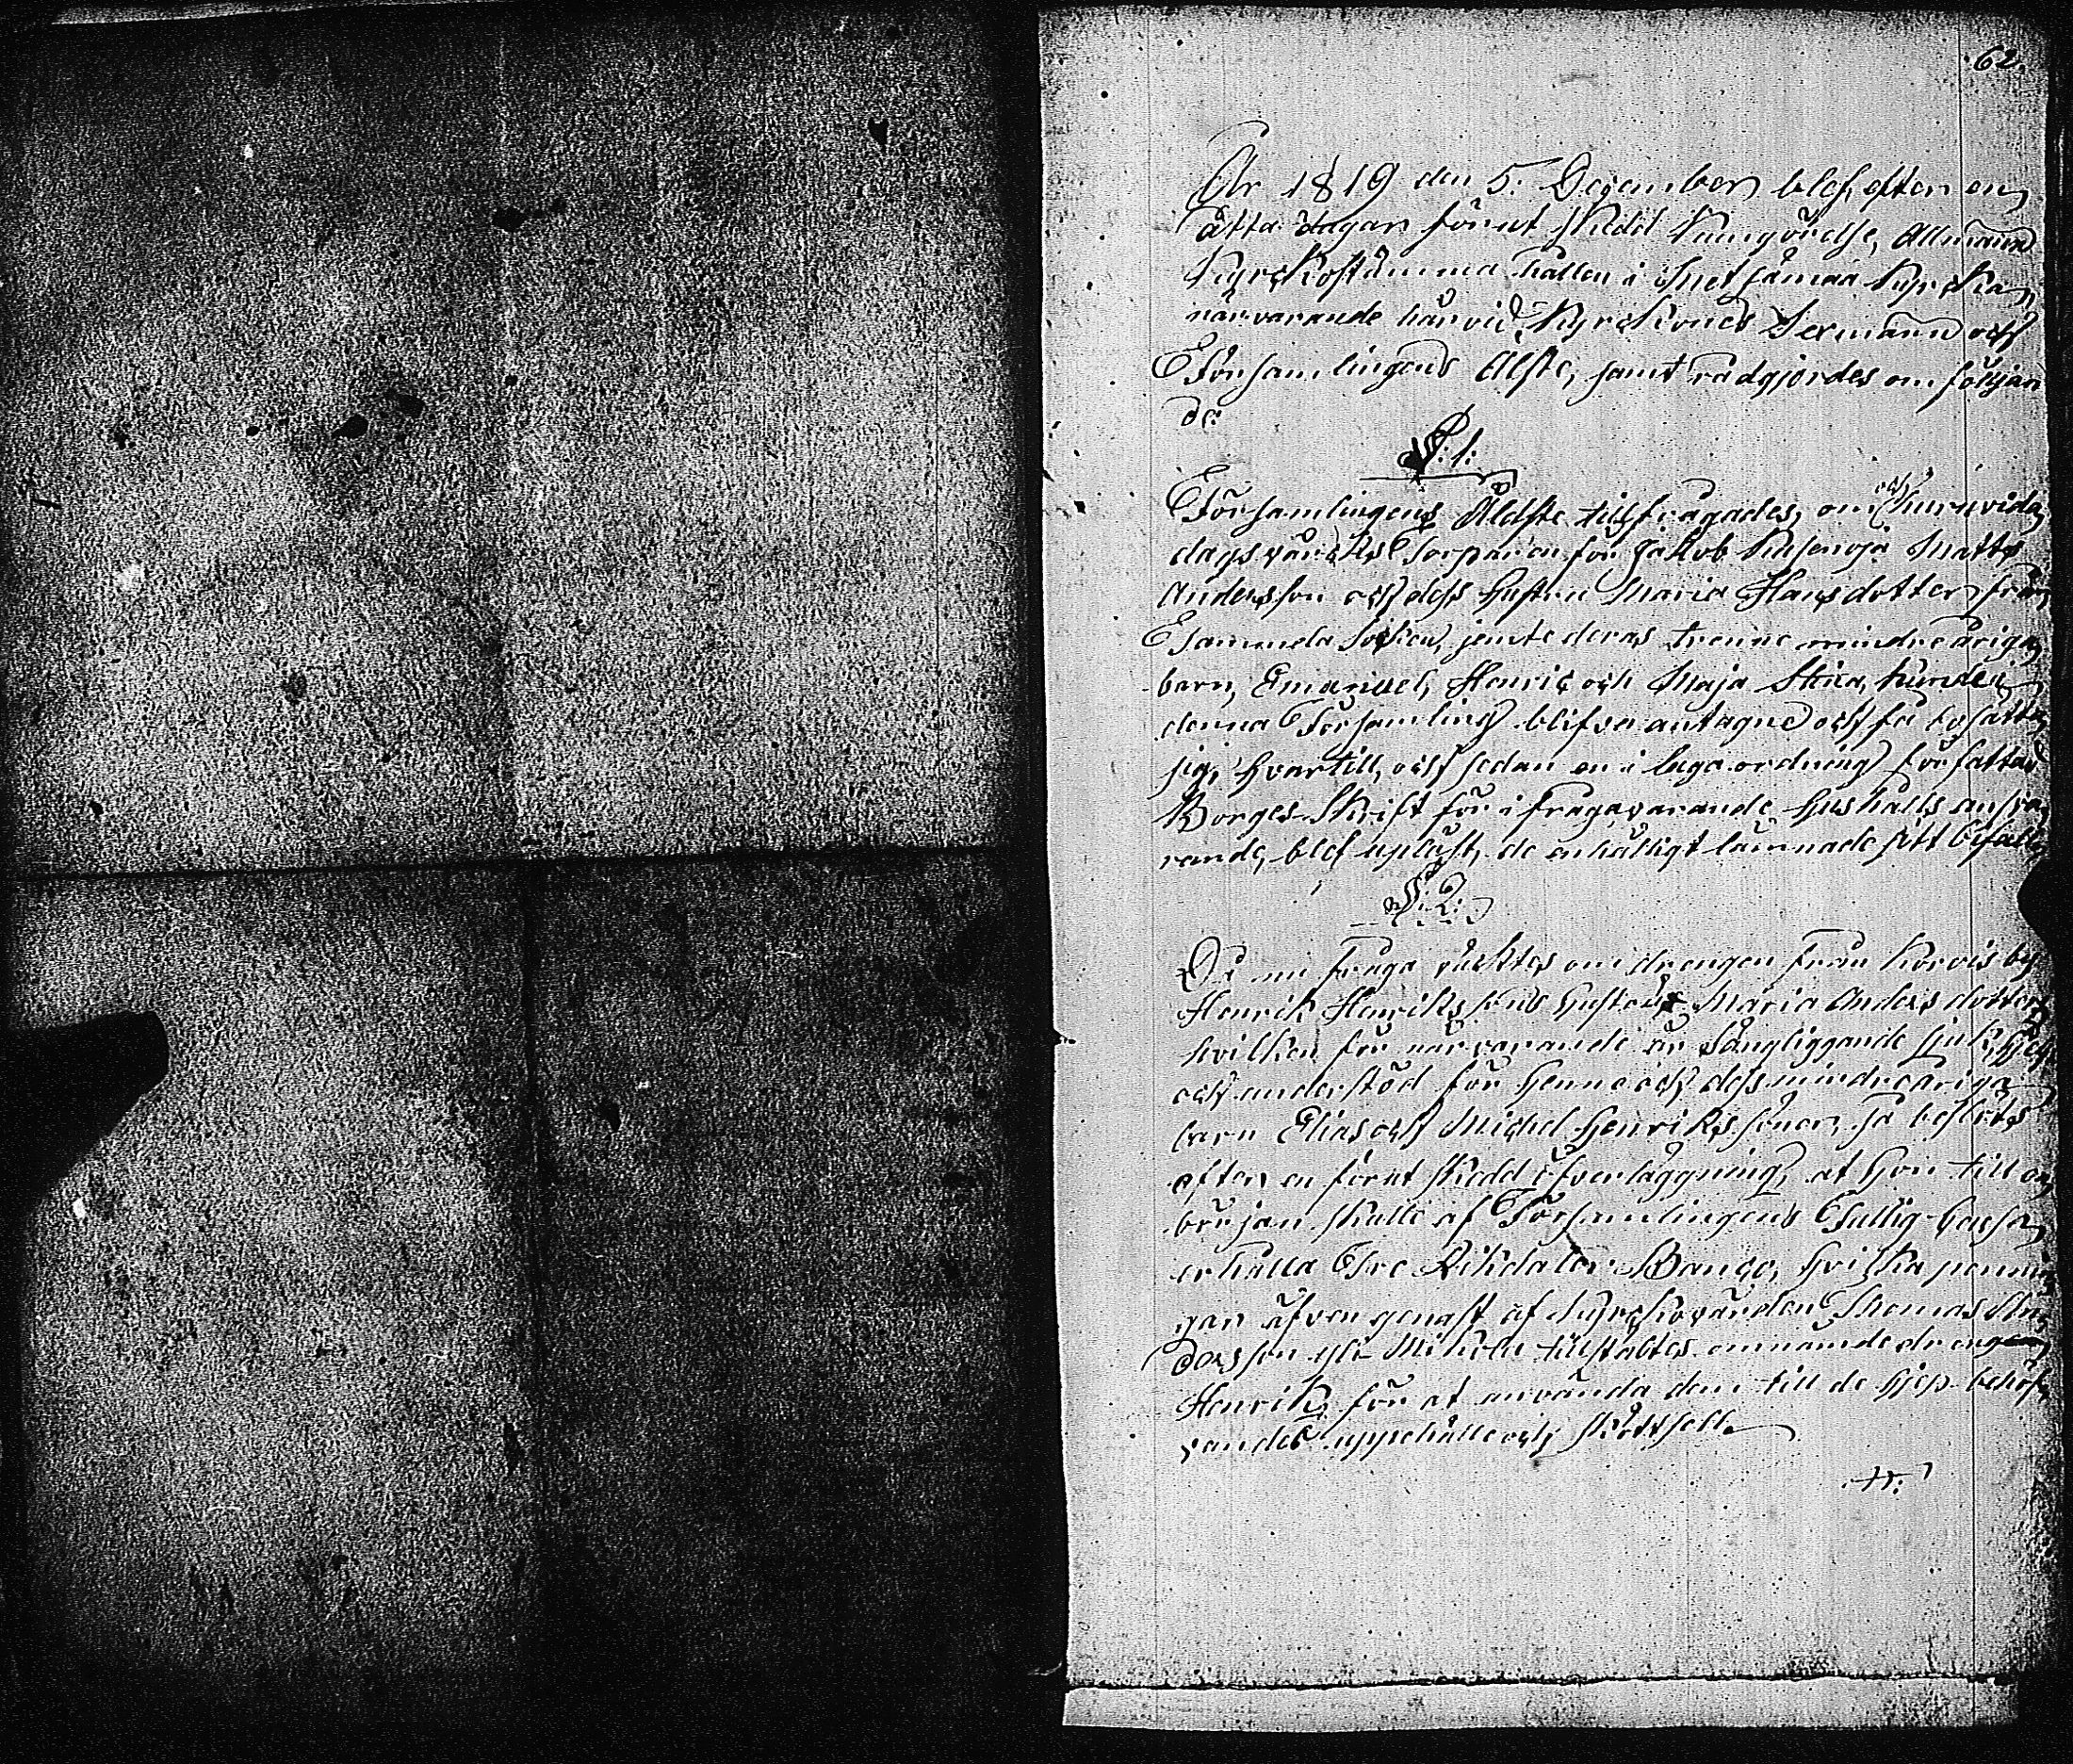 62.
År 1819 den 5. December blef, efter en
åtta dagar förut skedd kungörelse, Allmänn
Kyrckostämma hållen i Kyrckan
närvarande härvid Kyrckones Sexmänn och
Församlingens Älste, samt rådgjordes om följan
de:
§. 1:
Församlingens Äldste tillfrågades, om och huruvida
dagsvärcks Torparen för Jakob Matts
Andersson och dess hustru Maria Hansdotter från
Tammela Socken, jemte deras trenne mindreåriga
barn, Emanuel, Henric och Maja Stina, kunde i
denna Församling blifva antagne och få bosätta
sig, hvartill, och sedan en i laga ordning författad
Borges-Skrift för i frågavarande Hushålls ansva
rande, blef upläst, de enhälligt lämnade sitt bifall.
§. 2:
Då nu fråga väcktes om drengen från Korvis by
Henrik Henrikssons hustru Maria Andersdotter
hvilken för närvarande är Sängliggande sjuk, hjelp
och understöd för henne och dess mindreåriga
barn Elias och Michel Henriks söner, så beslöts
efter en förut skedd öfverläggning, at hon till en
början skulle af Församlingens Fattig-Cassa
erhålla Tre Riksdaler Banco, hvilka pennin
gar äfven genast af Kyrckovärden Thomas An
dersson tillstältes omnämnde drengen
Henrik, för at använda dem till de hjelp behöf
vandes uppehälle och Skötsell.